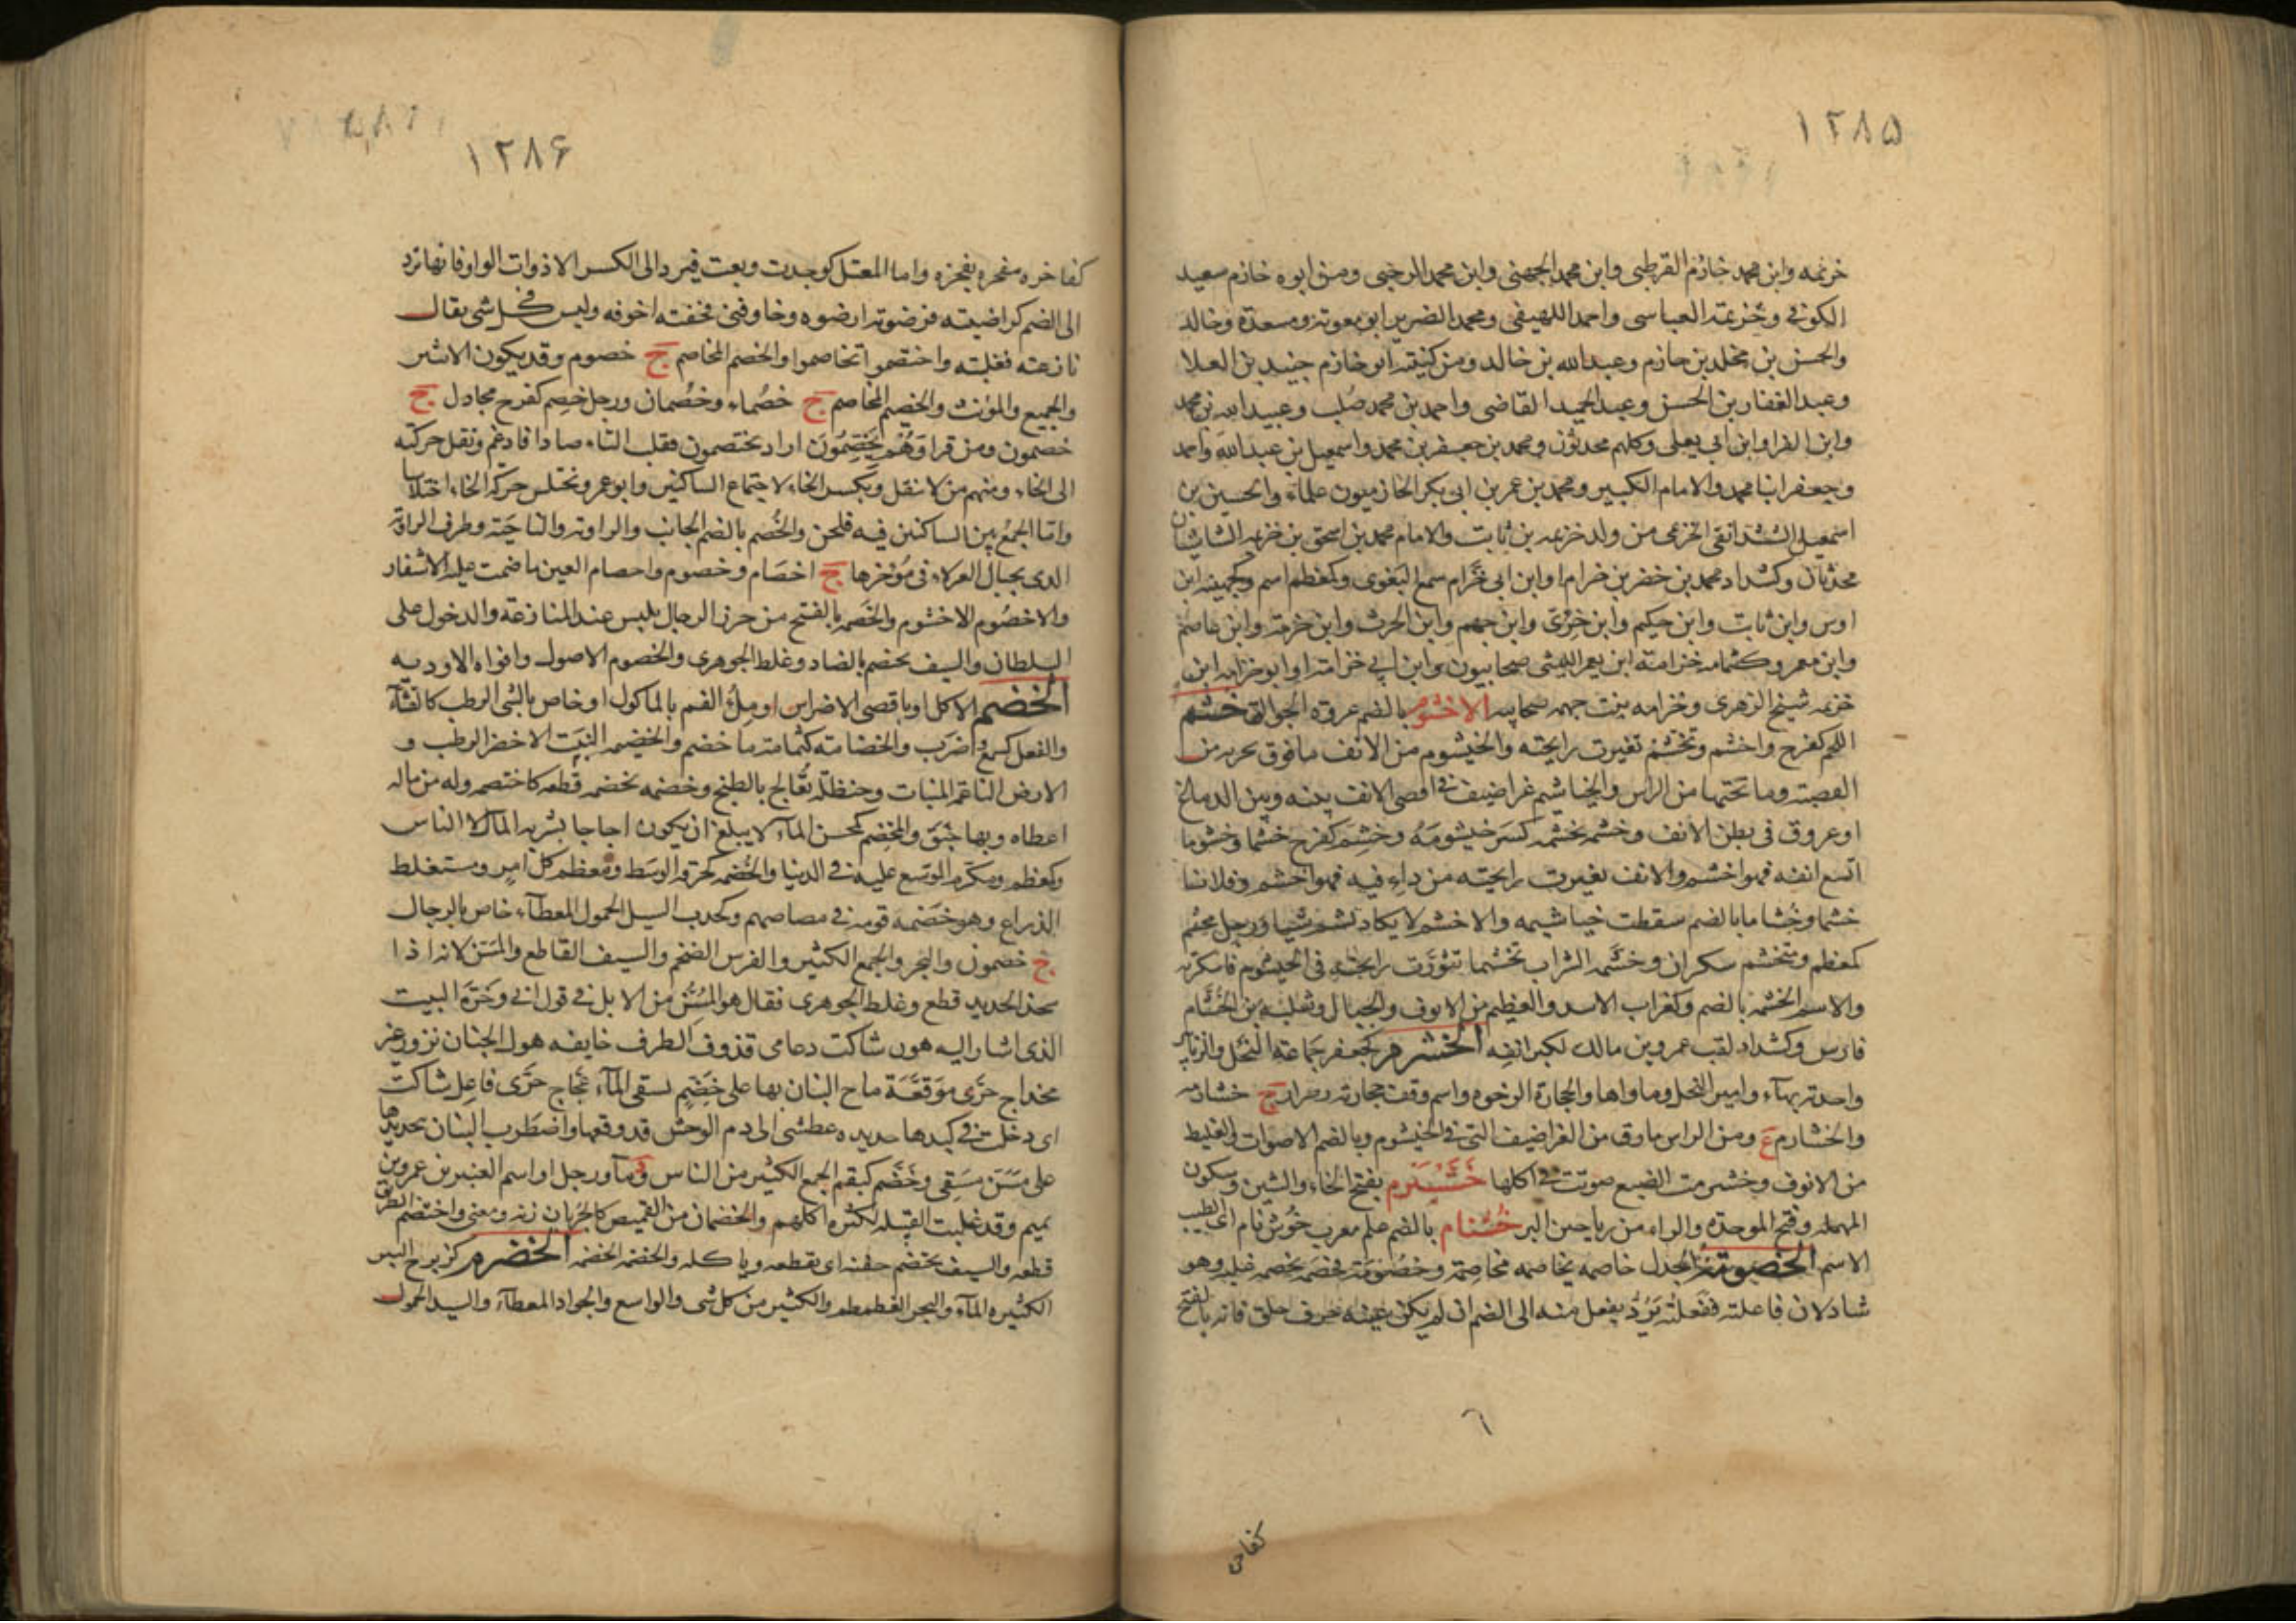 ١٢٨۵
خزيمه وابن محمد خازم القرطبى وابن محمد الجهنى وابن محمد الرحبى ومن ابوه خازم سعيد
الكوفى وخزيمة العباسى واحمد اللهيفى ومحمد الضرير ابو معوية ومسعدة وخالد
والحسن بن مخلد بن خازم وعبد الله بن خالد ومن كنيته ابو خازم جنيد بن العلا
وعبد الغفار بن الحسن وعبد الحميد القاضى واحمد بن محمد صلب وعبيد الله بن محمد
وابن الفرا وابن ابى يعلى وكلهم محدثون ومحمد بن جعفر بن محمد واسمعيل بن عبد الله واحمد
وجعفر ابنا محمد والامام الكبير ومحمد بن عمر بن ابى بكر الخازميون علماء والحسين بن
اسمعيل الخزمى من ولد خزيمه بن ثابت والامام محمد بن اسحق بن خزيمه
محدثان وكشداد محمد بن خضر بن خزام او ابن ابى خزام سمع البغوى وكمعظم اسم وكجهينه ابن
اوس وابن ثابت وابن حكيم وابن خزى وابن جهم وابن الحرث وابن خزمة وابن عاصم
وابن معمر وكثمامه خزامة ابن يعمر الليثى صحابيون وابن ابى خزامة او ابو خزامه ابن
خزيمه شيخ الزهرى وخزامه بنت جهمه صحابيه الاخشوم بالضم عروة الجوالق خشم
اللحم كفرح واخشم وتخشم تغيرت رايحته والخيشوم من الانف ما فوق نخرته من
القصبة وما تحتها من الراس والخياشيم غراضيف فى اقصى الانف بينه وبين الدماغ
او عروق فى بطن الانف وخشمه يخشمه كسر خيشومه وخشم كفرح خشما وخشوما
اتسع انفه فهو اخشم والانف تغيرت رايحته من داء فيه فهو اخشم وفلانا
خشما وخشاما بالضم سقطت خياشيمه والاخشم لا يكاد يشم شيا ورجل مخشم
كمعظم ومتخشم سكران وخشمه الشراب تخشيما تثورت رايحته فى الخيشوم فاسكرته
والاسم الخشمه بالضم وكغراب الاسد والعظيم من الانوف والجبال وثعلبه بن الخشام
فارس وكشداد لقب عمرو بن مالك لكبر انفه الخشرم كجعفر جماعة النحل والزنابير
واحدته بهاء وامير النحل وماواها والحجارة الرخوه واسم وقف حجارته رضراض ج خشارمه
والخشارم ع ومن الراس مارق من الغراضيف التى فى الخيشوم وبالضم الاصوات والغليظ
من الانوف وخشرمت الضبع صوتت فى اكلها خشسبرم بفتح الخاء والشين وسكون
المهمله وفتح الموحدة والراء من رياحين البر خشنام بالضم علم معرب خوش نام اى الطيب
الاسم الخصومة الجدل خاصمه يخاصمه مخاصمة وخصومة فخصمه يخصمه غلبه وهو
شاذ لان فاعلته ففعلته يرد يفعل منه الى الضم ان لم يكن عينه حرف حلق فانه بالفتح
٦
كفاخر
١٢٨۶
كفاخره ففخره يفخره واما المعتل كوجدت وبعت فيرد الى الكسر الا ذوات الواو فانها ترد
الى الضم كراضيته فرضوته ارضوه وخاوفنى فخفته اخوفه وليس فى كل شى يقال
نازعته فغلبته واختصموا تخاصموا والخصم المخاصم ج خصوم وقد يكون الاثنين
والجميع والمؤنث والخصيم المخاصم ج خصماء وخصمان ورجل خصم كفرح مجادل ج
خصمون ومن قرا وهم يخصمون اراد يختصمون فقلب التاء صادا فادغم ونقل حركته
الى الخاء ومنهم من لا ينقل ويكسر الخاء لاجتماع الساكنين وابو عمرو يختلس حركة الخاء اختلاسا
واما الجمع بين الساكنين فيه فلحن والخصم بالضم الجانب والزاوية والناحية وطرف الراوية
الذى بحيال العزلاء فى مؤخرها ج اخصام وخصوم واخصام العين ما ضمت عليه الاشفار
والاخصوم الاخشوم والخصمه بالفتح من حرز الرجال يلبس عند المنازعة والدخول على
السلطان والسيف يخصم بالضاد وغلط الجوهرى والخصوم الاصول وافواه الاوديه
الخضم الاكل او باقصى الاضراس او ملء الفم بالماكول او خاص بالشى الرطب كالقثاء
والفعل كسمع وضرب والخضامة كثمامة ما خضم والخضيمه النبت الاخضر الرطب و
الارض الناعمة المنبات وحنطة تعالج بالطبخ وخضمه يخضمه قطعه كاختضمه وله من ماله
اعطاه وبها حبق والمخضم كمحسن الماء لا يبلغ ان يكون اجاجا يشربه المال لا الناس
وكمعظم ومكرم الموسع عليه فى الدنيا والخضمه كحزقه الوسط ومعظم كل امر ومستغلظ
الذراع وهو خضمه قومه فى مصاصهم وكخدب السيل الحمول المعطاء خاص بالرجال
ج خضمون والبحر والجمع الكثير والفرس الضخم والسيف القاطع والمسن لانه اذا
شحذ الحديد قطع وغلط الجوهرى فقال هو المسن من الابل فى قول ابى وجزة البيت
الذى اشار اليه هو شاكت دعامى قذوف الطرف خايفه هول الجنان نزور غير
مخداج حرى موقعة ماج البنان بها على خضم يسقى الماء عجاج حرى فاعل شاكت
اى دخلت فى كبدها حديده عطشى الى دم الوحش قد وقعها واضطرب البنان بتحديدها
على مسن مسقى وخضم كبقم الجمع الكثير من الناس وماء ورجل او اسم العنبر بن عمرو بن
تميم وقد غلبت القبيله لكثره اكلهم والخضمان من القميص كالجربان زنة ومعنى واختضم الطريق
قطعه والسيف يختضم جفنه اى يقطعه وياكله الخضرم كزبرج البئر
الكثيره الماء والبحر الغطمطم والكثير من كل شى والواسع والجواد المعطاء والسيد الحمول